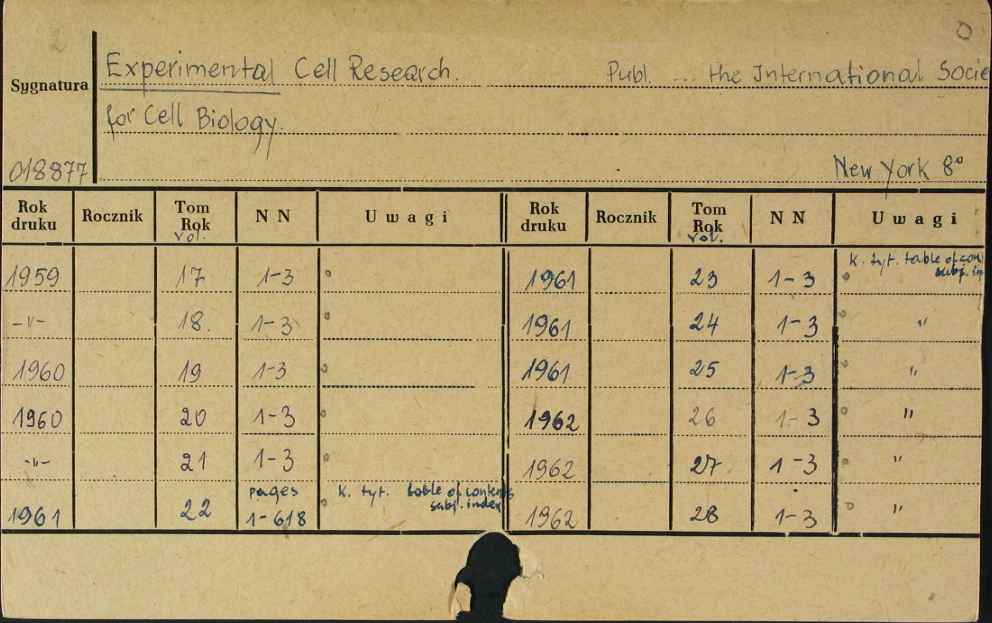 Experimental Cell Research. Publ. ... the International Socie
Sygnatura
for Cell Biology.
018877 New York 8°
Rok druku Rocznik Tom Rok vol. N N Uwagi Rok druku Rocznik Tom Rok vol. N N Uwagi
1959 17 1-3 1961 23 1-3 k. tyt. table of con subj. in
-"- 18. 1-3 1961 24 1-3 "
1960 19 1-3 1961 25 1-3 "
1960 20 1-3 1962 26 1-3 "
-"- 21 1-3 1962 27 1-3 "
1961 22 pages 1-618 k. tyt. table of contents subj. index 1962 28 1-3 "